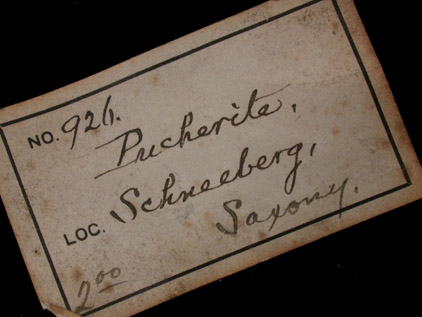 NO. 926.
Pucherite,
LOC. Schneeberg,
Saxony.
2.00